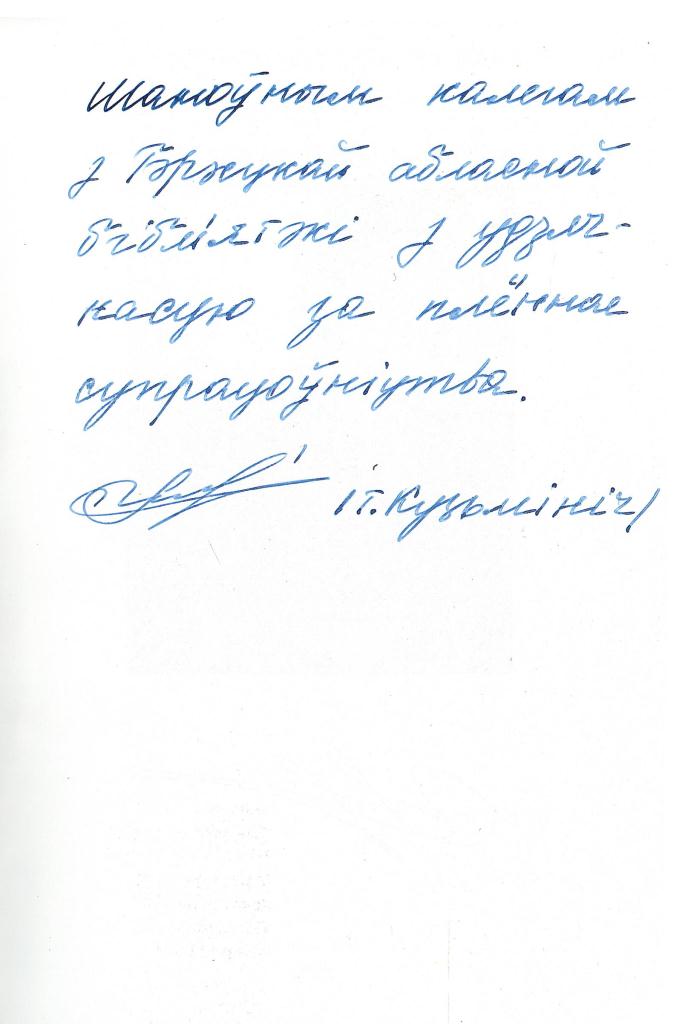 Шаноўным калегам
з Брэсцкай абласной
бібліятэкі з удзяч-
насцю за плённае
супрацоўніцтва.
/Т. Кузьмініч/